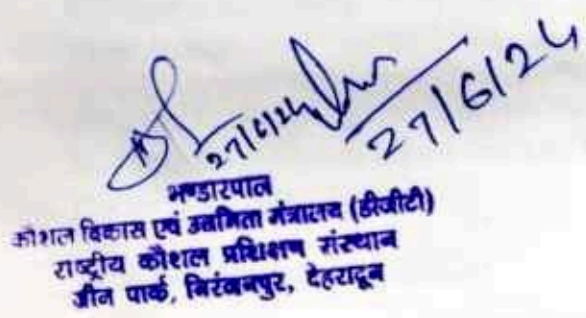 27/6/24
27/6/24
भण्डारपाल
कौशल विकास एवं उद्यमिता मंत्रालय (डीजीटी)
राष्ट्रीय कौशल प्रशिक्षण संस्थान
ग्रीन पार्क, निरंजनपुर, देहरादून